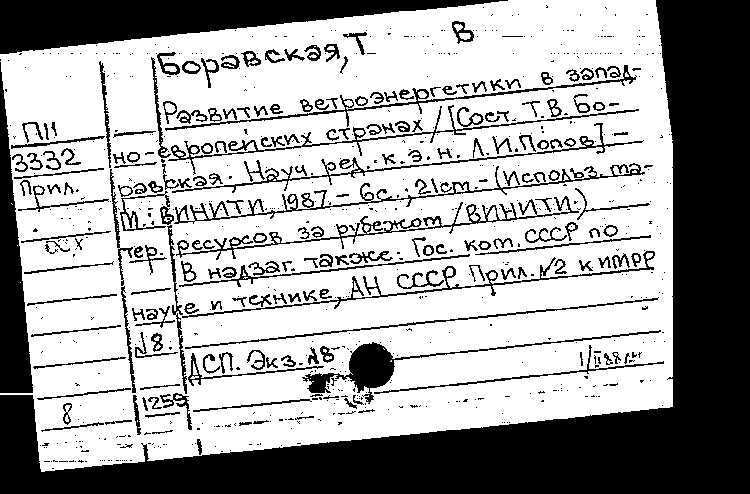 Боравская, Т В
Развитие ветроэнергетики в запад-
ПII
но-европейских странах / [Сост. Т.В. Бо-
3332
равская; Науч. ред. к.э.н. Л.И.Попов] –
Прил.
М.: ВИНИТИ, 1987. – 6с.; 21см. – (Использ. ма-
тер. ресурсов за рубежом / ВИНИТИ.)
В надзаг. также: Гос. ком. СССР по
науке и технике, АН СССР. Прил. №2 к ИМРР
№8.
ДСП. Экз. №8
8
1259